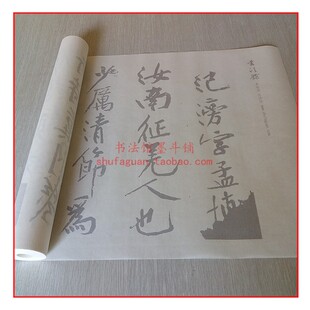 范滂字孟
汝南征羌人也
少厲清節為
书法馆墨斗铺
shufaguan.taobao.com